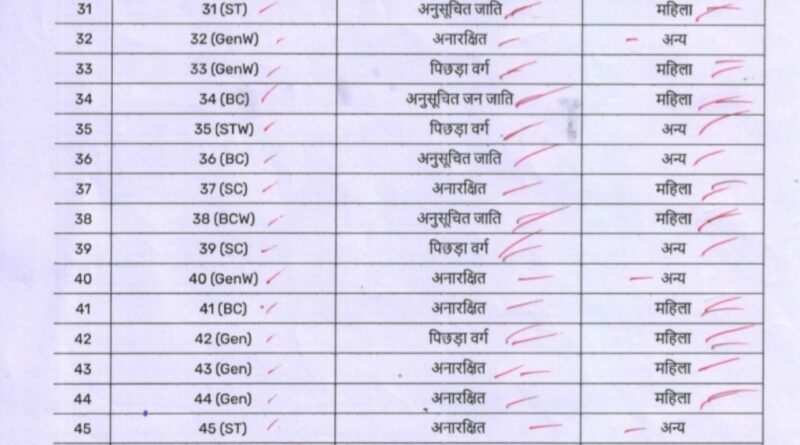 31 31 (ST) अनुसूचित जाति महिला
32 32 (GenW) अनारक्षित अन्य
33 33 (GenW) पिछड़ा वर्ग महिला
34 34 (BC) अनुसूचित जन जाति महिला
35 35 (STW) पिछड़ा वर्ग अन्य
36 36 (BC) अनुसूचित जाति अन्य
37 37 (SC) अनारक्षित महिला
38 38 (BCW) अनुसूचित जाति महिला
39 39 (SC) पिछड़ा वर्ग अन्य
40 40 (GenW) अनारक्षित अन्य
41 41 (BC) अनारक्षित महिला
42 42 (Gen) पिछड़ा वर्ग महिला
43 43 (Gen) अनारक्षित महिला
44 44 (Gen) अनारक्षित महिला
45 45 (ST) अनारक्षित अन्य